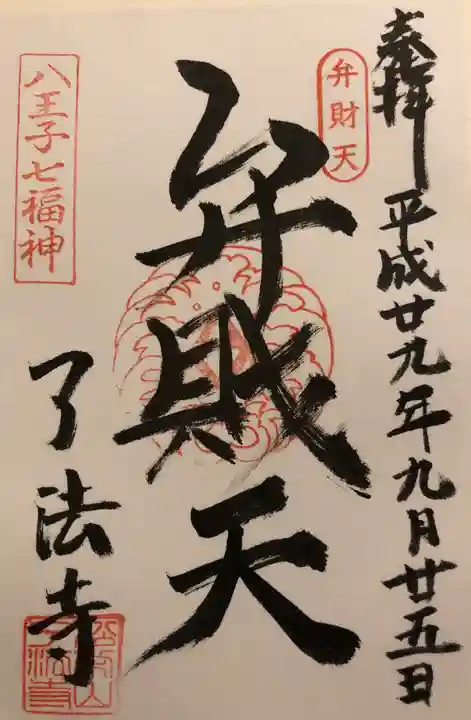 奉拝
平成廿九年九月廿五日
弁財天
弁財天
八王子七福神
了法寺